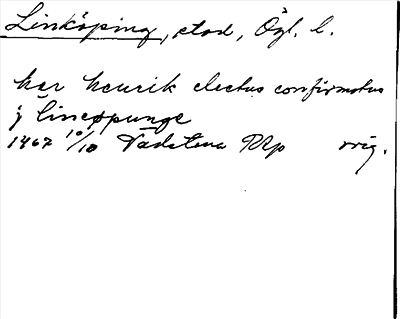 Linköping, stad, Ögl. l.
har henrik electus confirmatus
j lincøpunge
1462 10/10 Vadstena RAp orig.